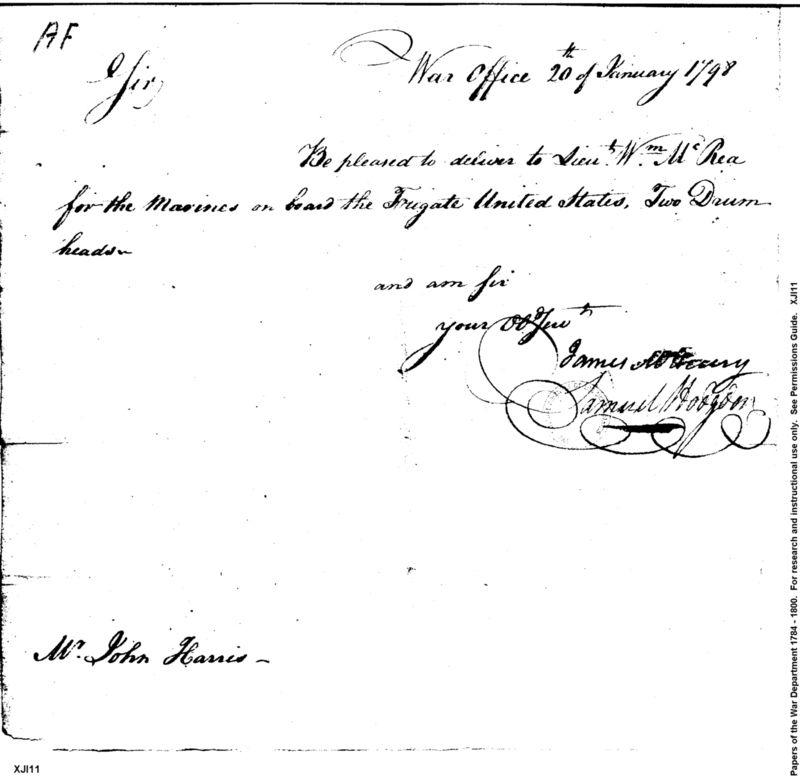 AF
War Office 20th of January 1798
Sir
Be pleased to deliver to Lieut. Wm. Mc Rea
for the Marines on board the Frigate United States, Two Drum
heads
and am Sir
your Obd Servt
James McHenry
Samuel Hodgdon
Mr. John Harris
XJI11
Papers of the War Department 1784 - 1800. For research and instructional use only. See Permissions Guide. XJI11